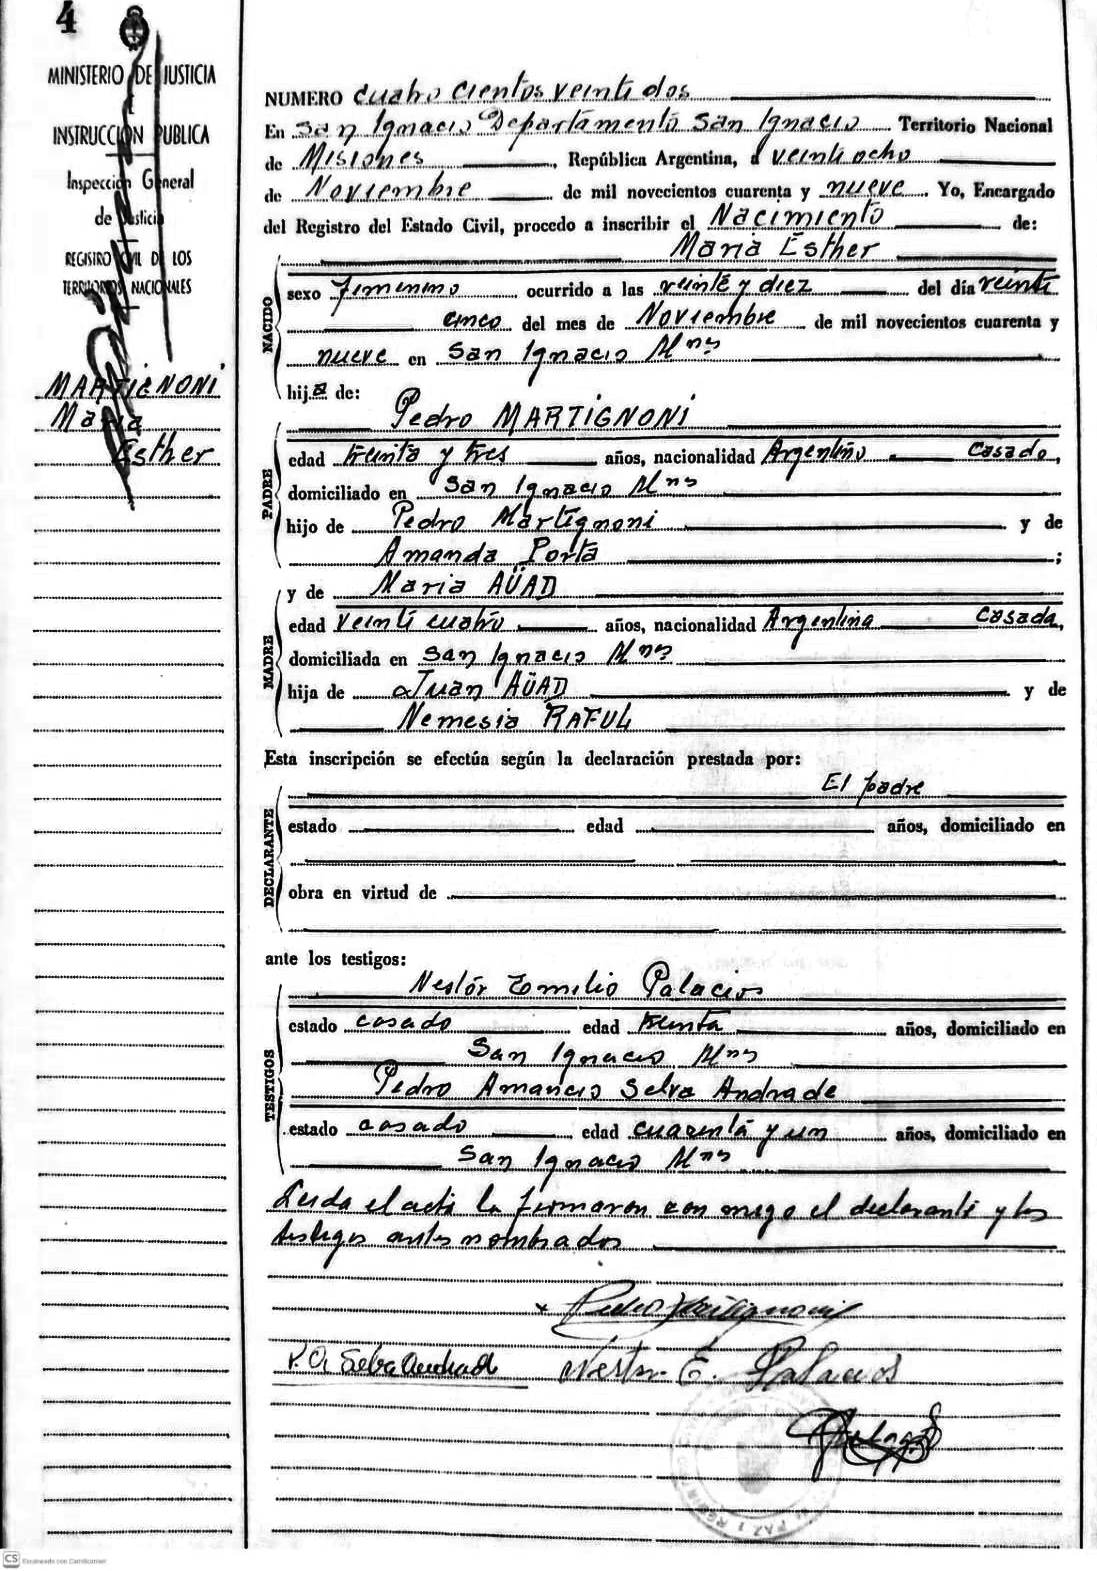 4
MINISTERIO DE JUSTICIA
E
INSTRUCCIÓN PUBLICA
Inspección General
de Justicia
REGISTRO CIVIL DE LOS
TERRITORIOS NACIONALES
MARTIGNONI
Maria
Esther
NUMERO cuatro cientos veinti dos
En San Ignacio Departamento San Ignacio Territorio Nacional
de Misiones, República Argentina, a veinti ocho
de Noviembre de mil novecientos cuarenta y nueve. Yo, Encargado
del Registro del Estado Civil, procedo a inscribir el Nacimiento de:
Maria Esther
NACIDO
sexo femenino ocurrido a las veinte y diez del día veinti
cinco del mes de Noviembre de mil novecientos cuarenta y
nueve en San Ignacio Mnes
hija de:
Pedro MARTIGNONI
PADRE
edad treinta y tres años, nacionalidad Argentino casado,
domiciliado en San Ignacio Mnes
hijo de Pedro Martignoni y de
Amanda Porta ;
y de Maria AÜAD
MADRE
edad veinti cuatro años, nacionalidad Argentina casada,
domiciliada en San Ignacio Mnes
hija de Juan AÜAD y de
Nemesia RAFUL
Esta inscripción se efectúa según la declaración prestada por:
El padre
DECLARANTE
estado edad años, domiciliado en
obra en virtud de
ante los testigos:
Nestór Emilio Palacios
TESTIGOS
estado casado edad treinta años, domiciliado en
San Ignacio Mnes
Pedro Amancio Selva Andrade
estado casado edad cuarenta y un años, domiciliado en
San Ignacio Mnes
Leida el acta la firmaron con migo el declarante y los
testigos antes nombrados
x Pedro Martignoni
P. A. Selva Andrade Nestor E. Palacios
CS Escaneado con CamScanner